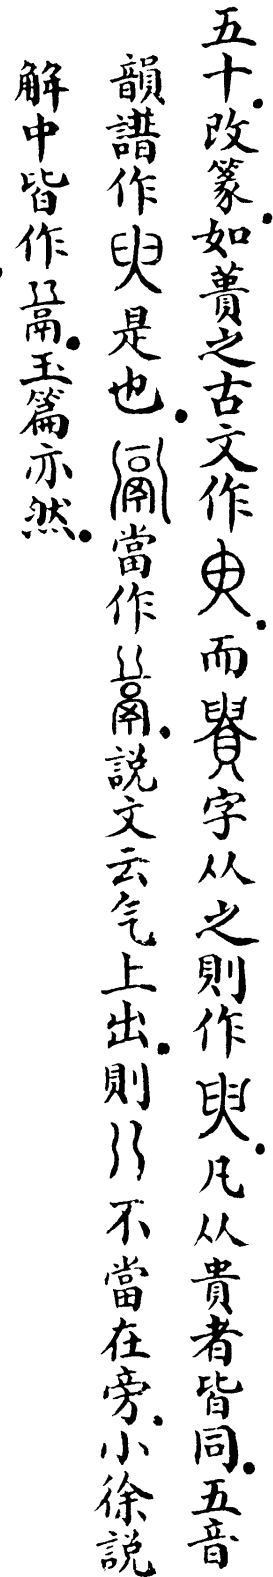 五十。改篆。如蕢之古文作臾。而貴字从之則作。凡从貴者皆同。五音
韻譜作是也。當作。說文云气上出。則不當在旁。小徐說
解中皆作。玉篇亦然。